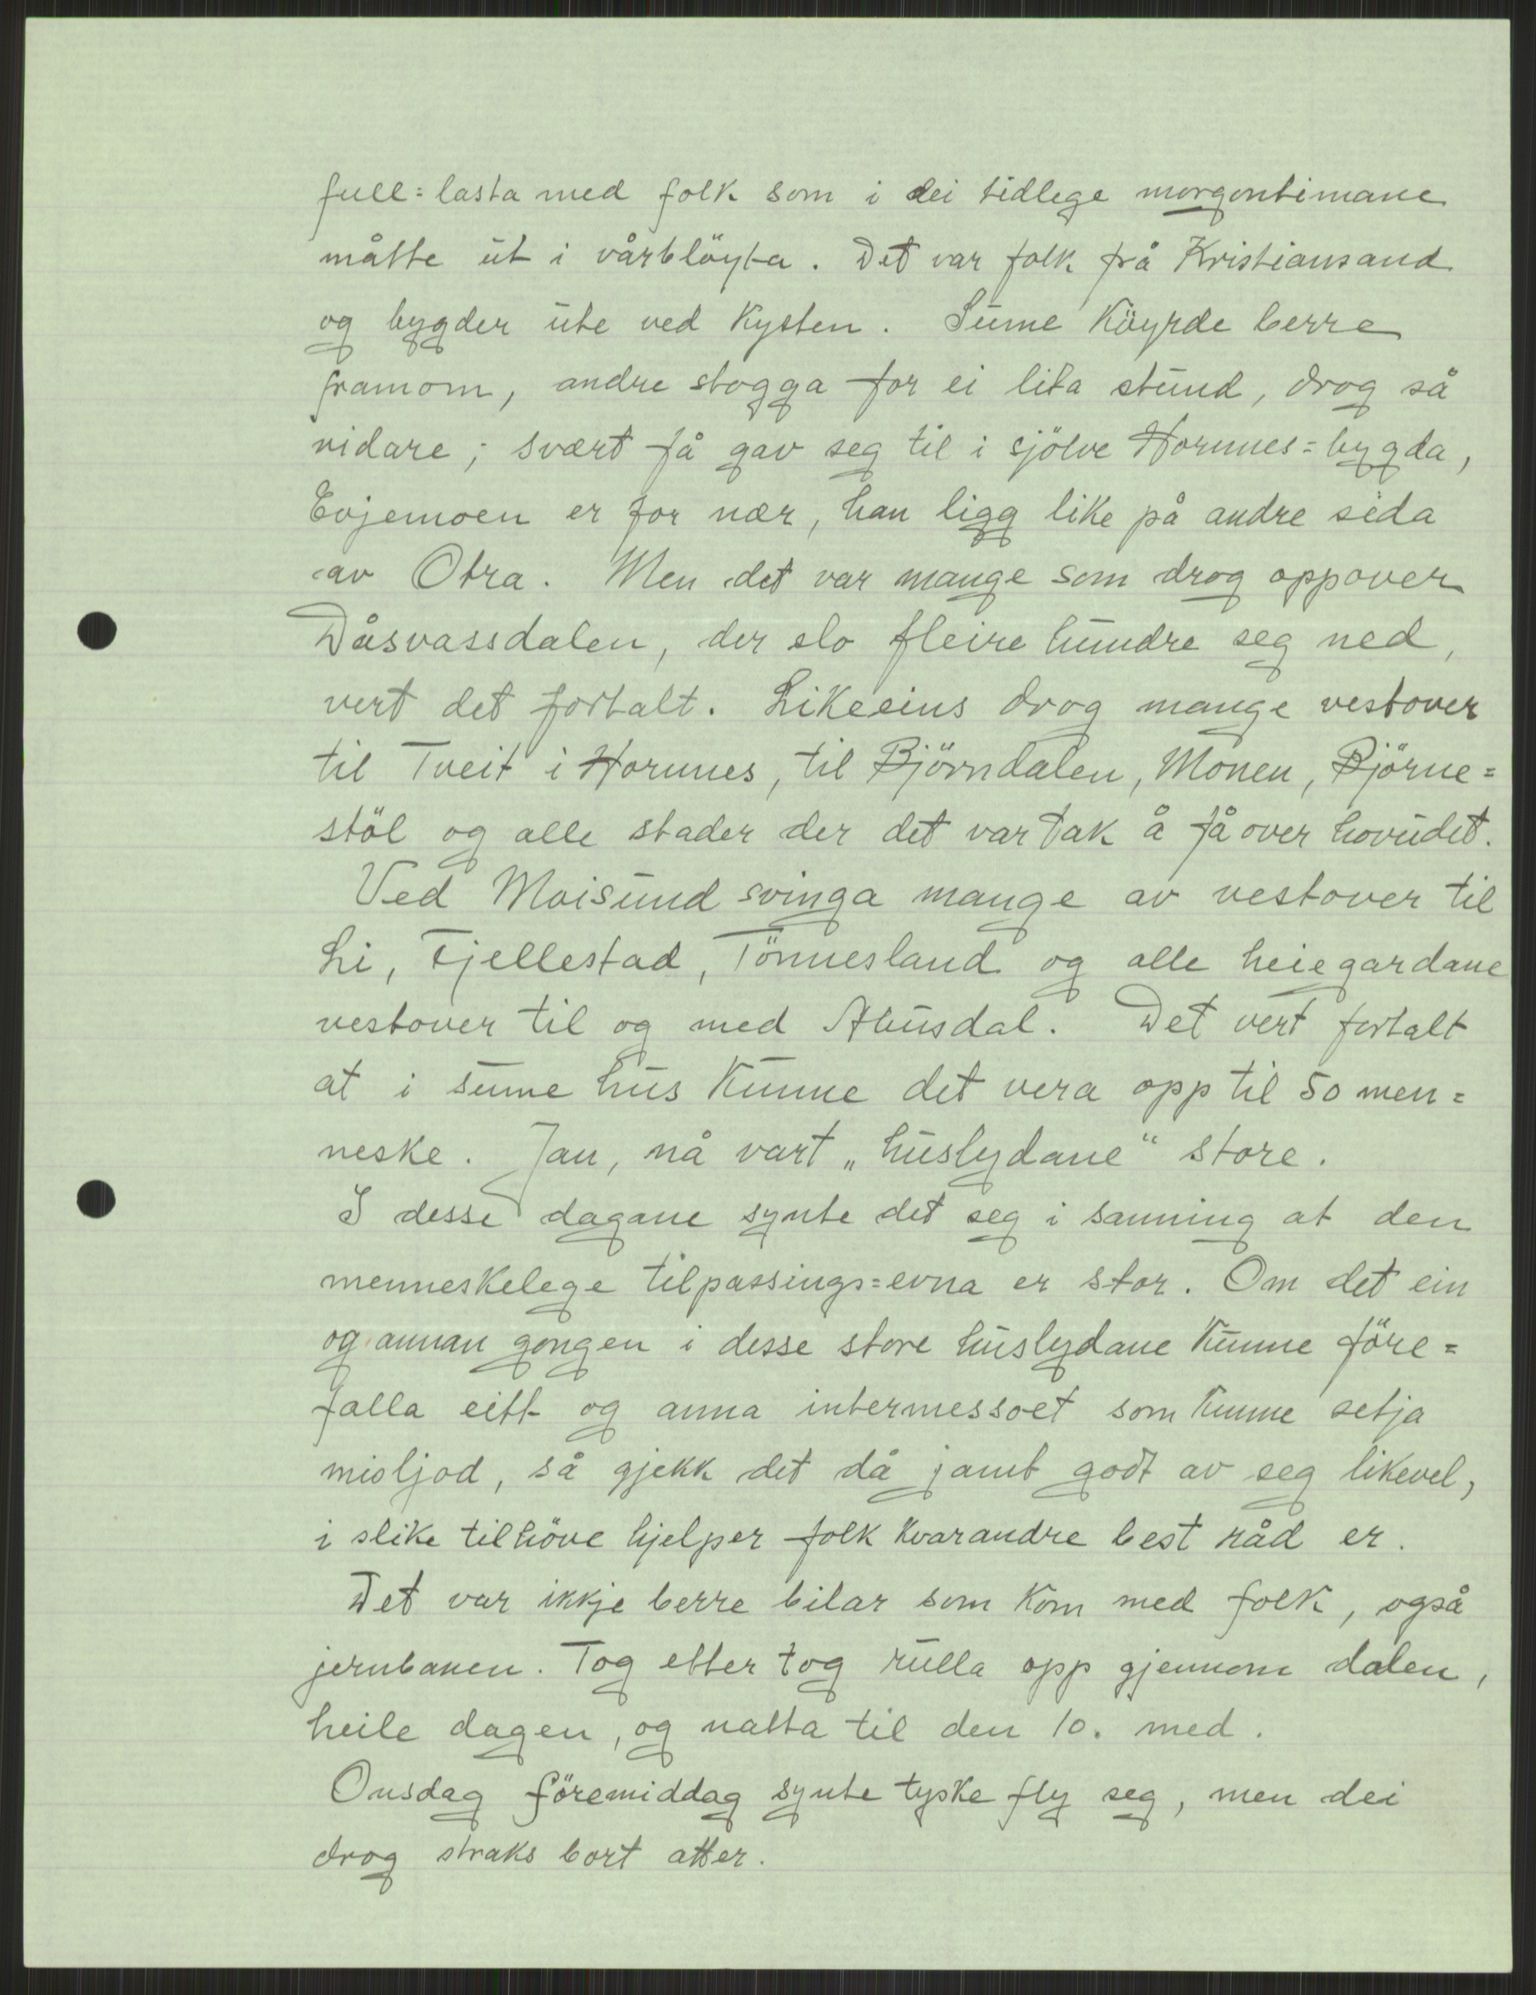 full=lasta med folk som i dei tidlege morgontimane
måtte ut i vårblöyta. Det var folk frå Kristiansand
og bygder ute ved Kysten. Sume Köyrde berre
framom, andre stogga for ei lita stund, drog så
vidare; svært få gav seg til i sjölve Hornnes=bygda,
Evjemoen er for nær, han ligg like på andre sida
av Otra. Men det var mange som drog oppover
Dåsvassdalen, der slo fleire hundre seg ned,
vert det fortalt. Likeeins drog mange vestover
til Tveit i Hornnes, til Björndalen, Monen, Björne=
stöl og alle stader der det var tak å få over hovudet.
Ved Moisund svinga mange av vestover til
Li, Fjellestad, Tönnesland og alle heiegardane
vestover til og med Abusdal. Det vert fortalt
at i sume hus Kunne det vera opp til 50 men=
neske. Jau, nå vart „huslydane“ store.
I desse dagane synte det seg i sanning at den
menneskelege tilpassings=evna er stor. Om det ein
og annan gongen i desse store huslydane Kunne före=
falla eitt og anna intermessoet som Kunne setja
misljod, så gjekk det då jamt godt av seg likevel,
i slike tilhöve hjelper folk Kvarandre best råd er.
Det var ikkje berre bilar som Kom med folk, også
jernbanen. Tog etter tog rulla opp gjennom dalen,
heile dagen, og natta til den 10. med.
Onsdag föremiddag synte tyske fly seg, men dei
drog straks bort atter.